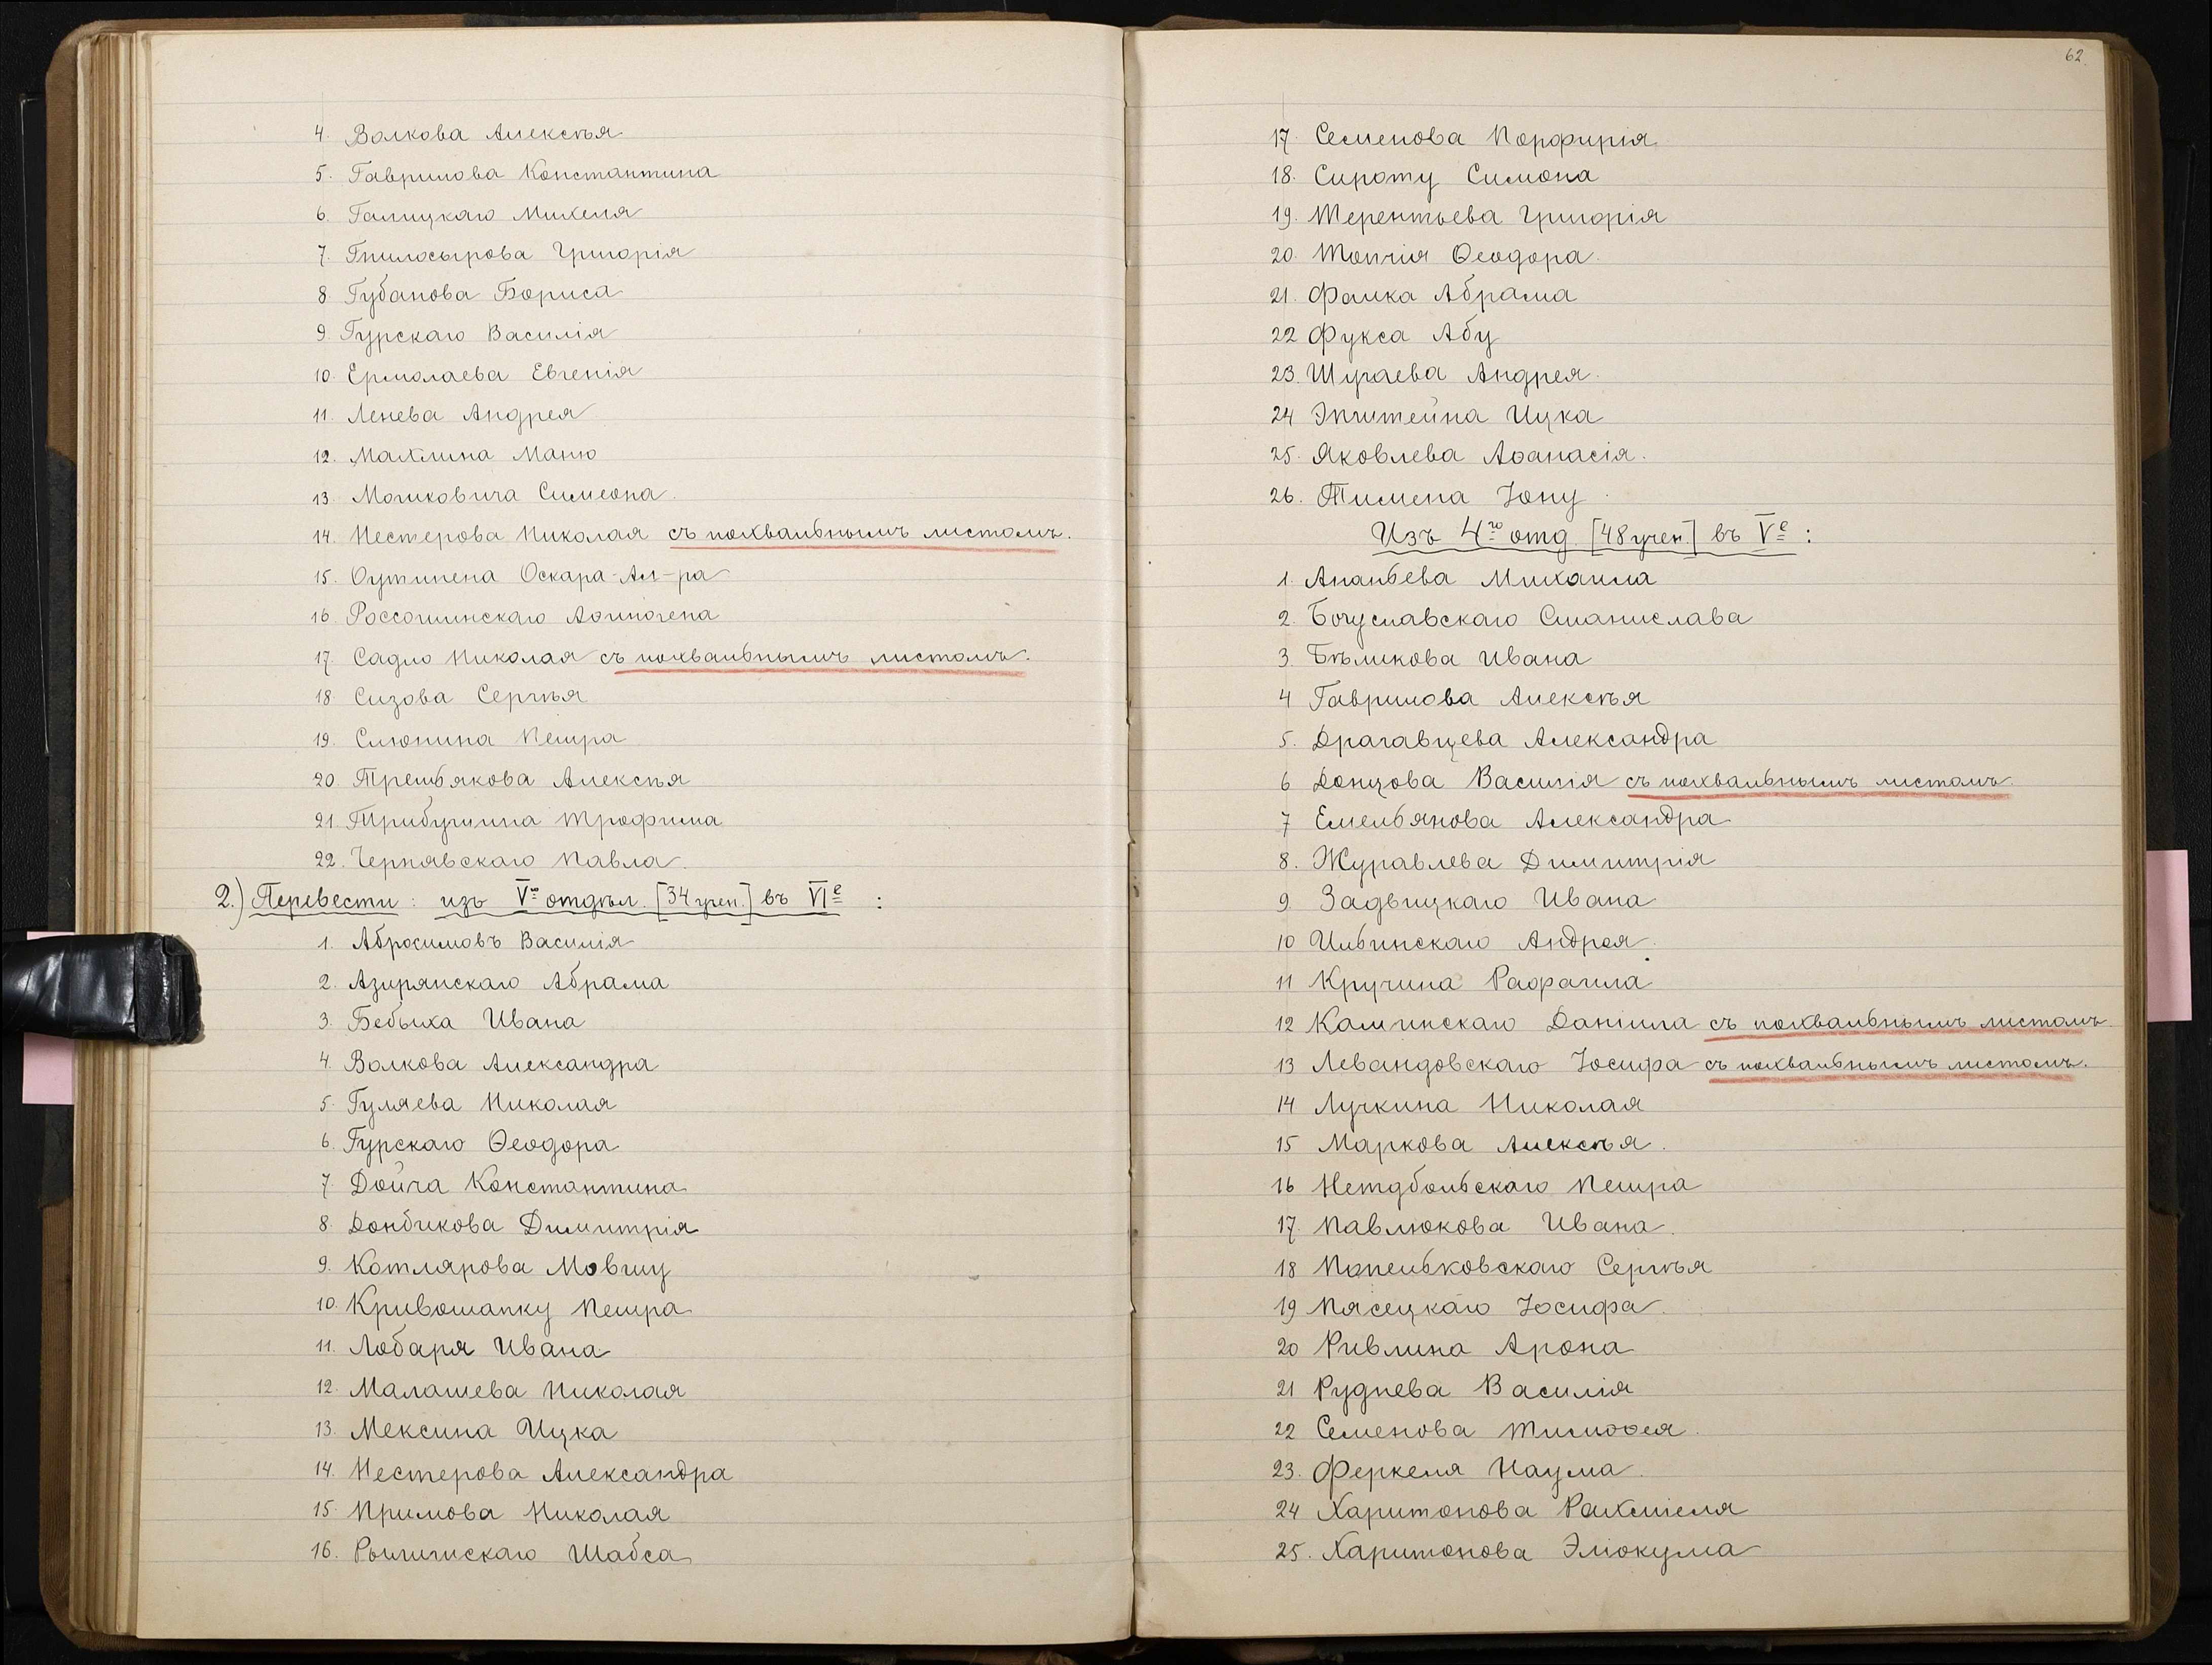 4. Волкова Алексѣя
5. Гаврилова Константина
6. Галицкаго Михеля
7. Гнилосырова Григорія
8 Губанова Бориса
9. Гурскаго Василія
10. Ермолаева Евгенія
11. Ленева Андрея
12. Махлина Маню
13. Мошковича Симеона.
14. Нестерова Николая съ похвальнымъ листомъ.
15. Оутинена Оскара-Ал-ра
16 Россошинскаго Аѳиногена
17. Садло Николая съ похвальнымъ листомъ.
18. Сизова Сергѣя
19. Слюнина Петра
20. Третьякова Алексѣя
21. Трибушина Трофима
22. Чернявскаго Павла.
2.) Перевести: изъ Vго отдѣл. [34 учен.] въ VIе :
1. Абросимовъ Василія
2. Азирянскаго Абрама
3. Бебыха Ивана
4. Волкова Александра
5. Гуляева Николая
6. Гурскаго Ѳеодора
7 Дойча Константина
8. Донбикова Димитрія
9. Котлярова Мовшу
10. Кривошапку Петра
11. Лобаря Ивана
12. Малашева Николая
13. Мексина Ицка
14. Нестерова Александра
15. Примова Николая
16. Шабса
62.
17. Семенова Порфирія
18. Сироту Симона
19. Терентьева Григорія
20. Топчія Ѳеодора.
21. Фалка Абрама
22 Фукса Абу
23. Шугаева Андрея.
24 Эпштейна Ицка
25. Яковлева Аѳанасія.
26. Тимена Іону
Изъ 4го отд. [48 учен.] въ Vе :
1. Ананьева Михаила
2. Богуславскаго Станислава
3. Бѣликова Ивана
4 Гаврилова Алексѣя
5. Драгавцева Александра
6 Донцова Василія съ похвальнымъ листомъ.
7 Емельянова Александра
8. Журавлева Димитрія
9. Задвицкаго Ивана
10 Ильинскаго Андрея.
11 Кручина Рафаила
12 Каминскаго Даніила съ похвальнымъ листомъ.
13 Левандовскаго Іосифа съ похвальнымъ листомъ.
14 Лучкина Николая
15 Маркова Алексѣя.
16 Петра
17. Павлюкова Ивана.
18 Попельковскаго Сергѣя
19 Пясецкаго Іосифа.
20 Ривлина Арона
21 Руднева Василія
22 Семенова Тимоѳея.
23. Феркеля Наума.
24 Харитонова Рахміеля
25. Харитонова Эліокума